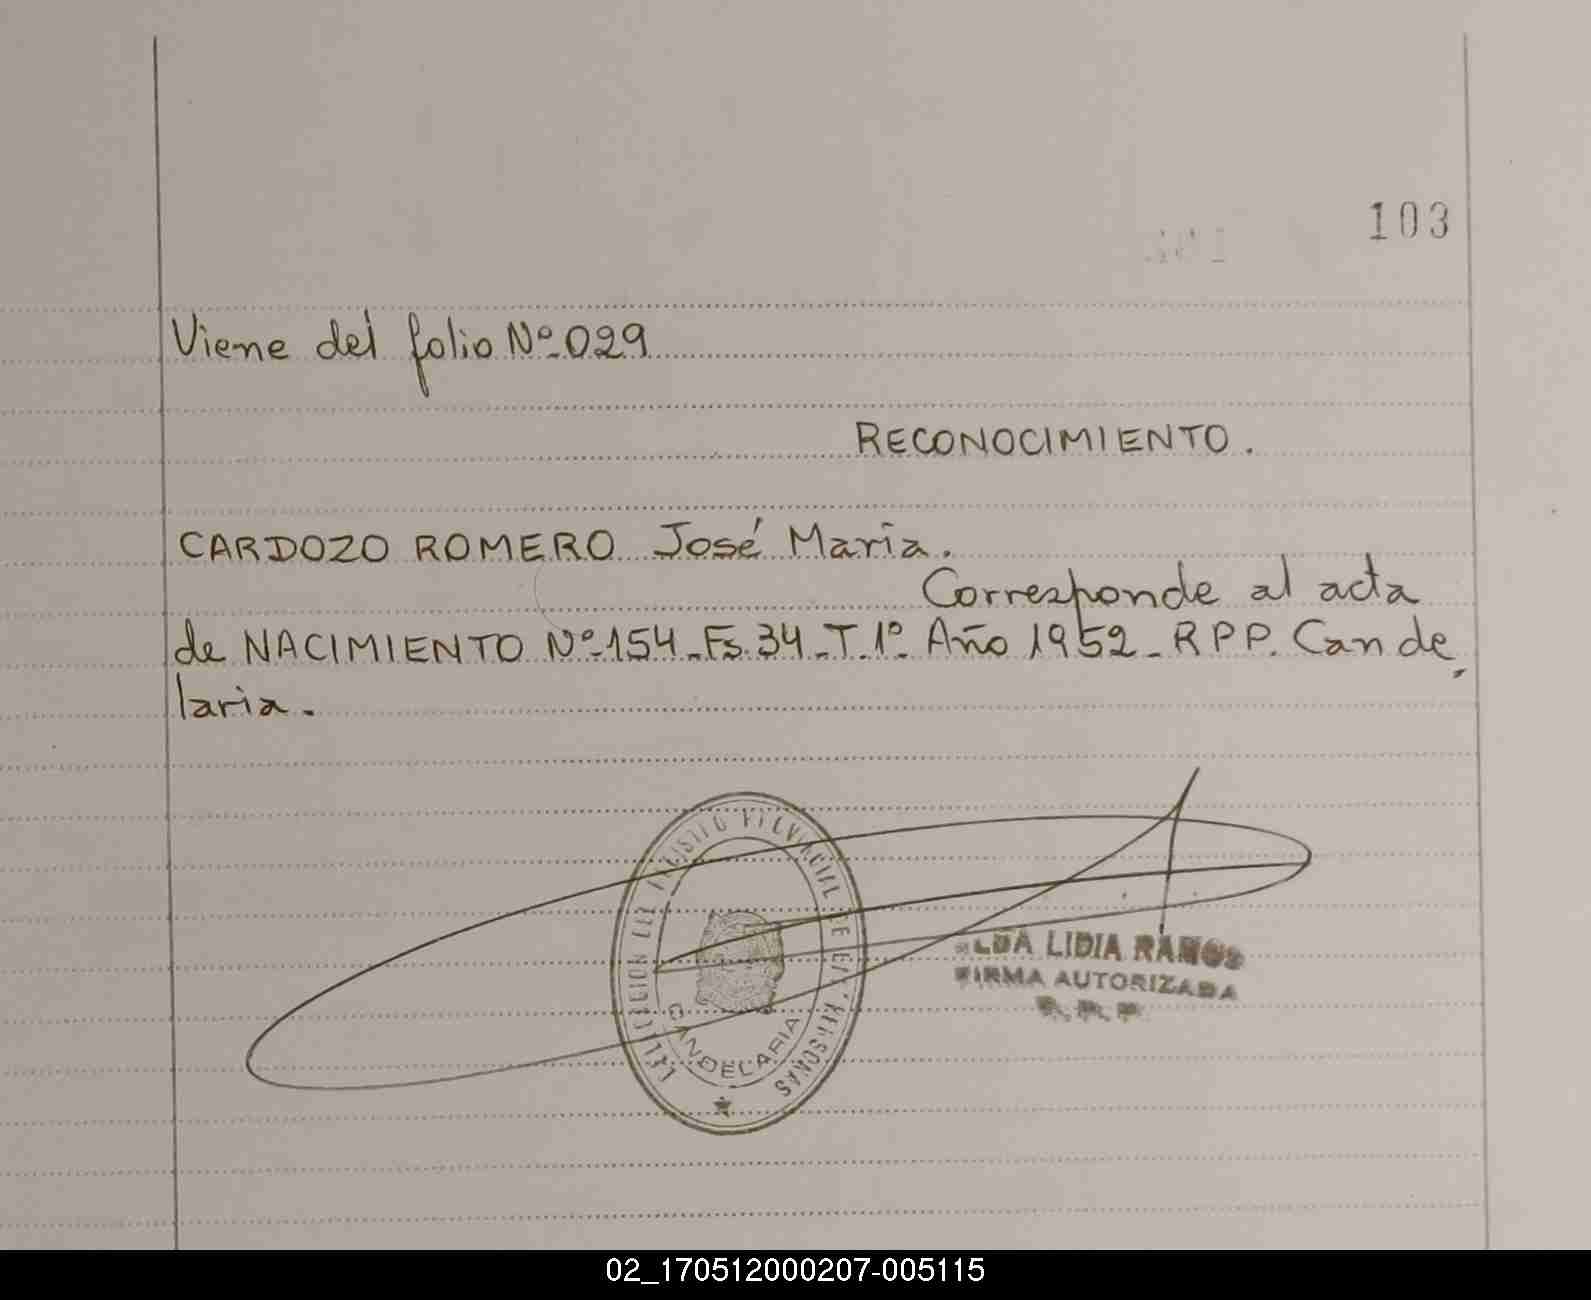 103
Viene del folio Nº 029
RECONOCIMIENTO.
CARDOZO ROMERO José María.
Corresponde al acta
de NACIMIENTO Nº 154_Fs.34_T.1º Año 1952_RPP. Cande
laria.
DELEGACION DEL REGISTRO PROVINCIAL DE LAS PERSONAS
CANDELARIA
LIDIA RAMOS
FIRMA AUTORIZADA
R.P.P.
02_170512000207-005115